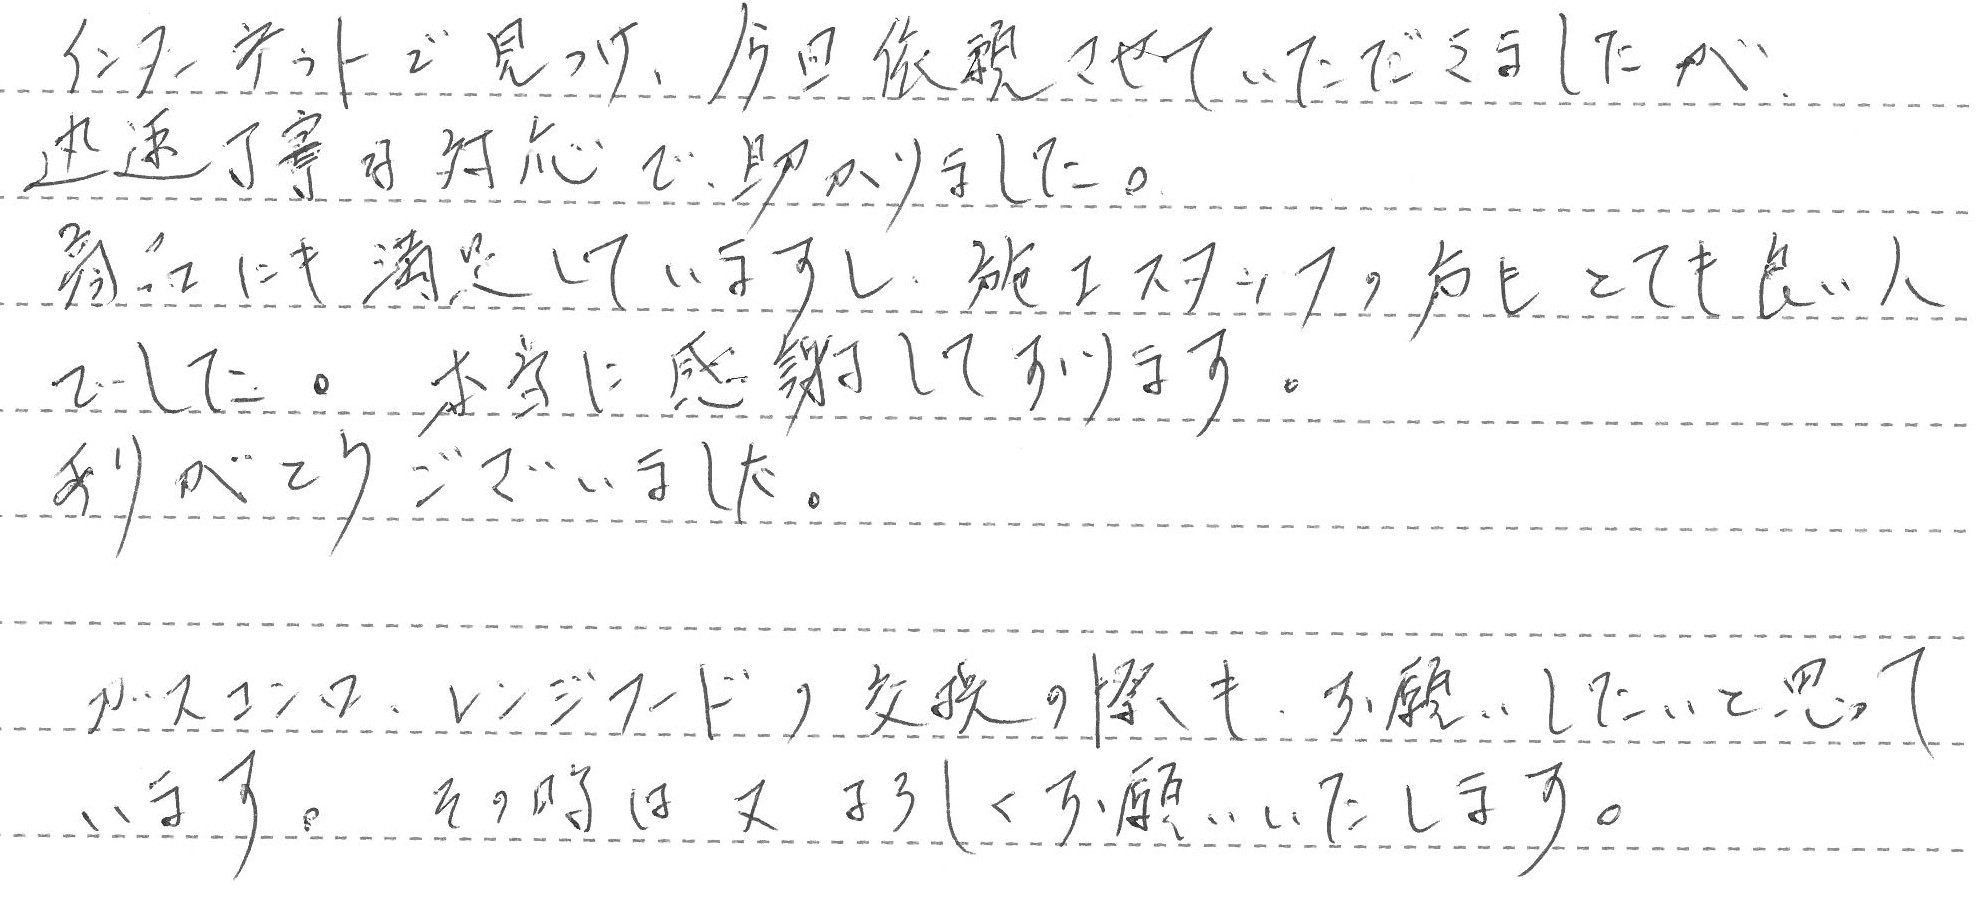 インターネットで見つけ、今回依頼させていただきましたが、
迅速丁寧な対応で、助かりました。
商品にも満足していますし、施工スタッフの方もとても良い人
でした。 本当に感謝しております。
ありがとうございました。
ガスコンロ、レンジフードの交換の際も、お願いしたいと思って
います。 その時は又よろしくお願いいたします。